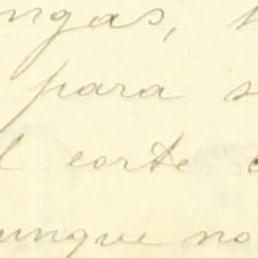 ngas,
para s
l corte
unque no